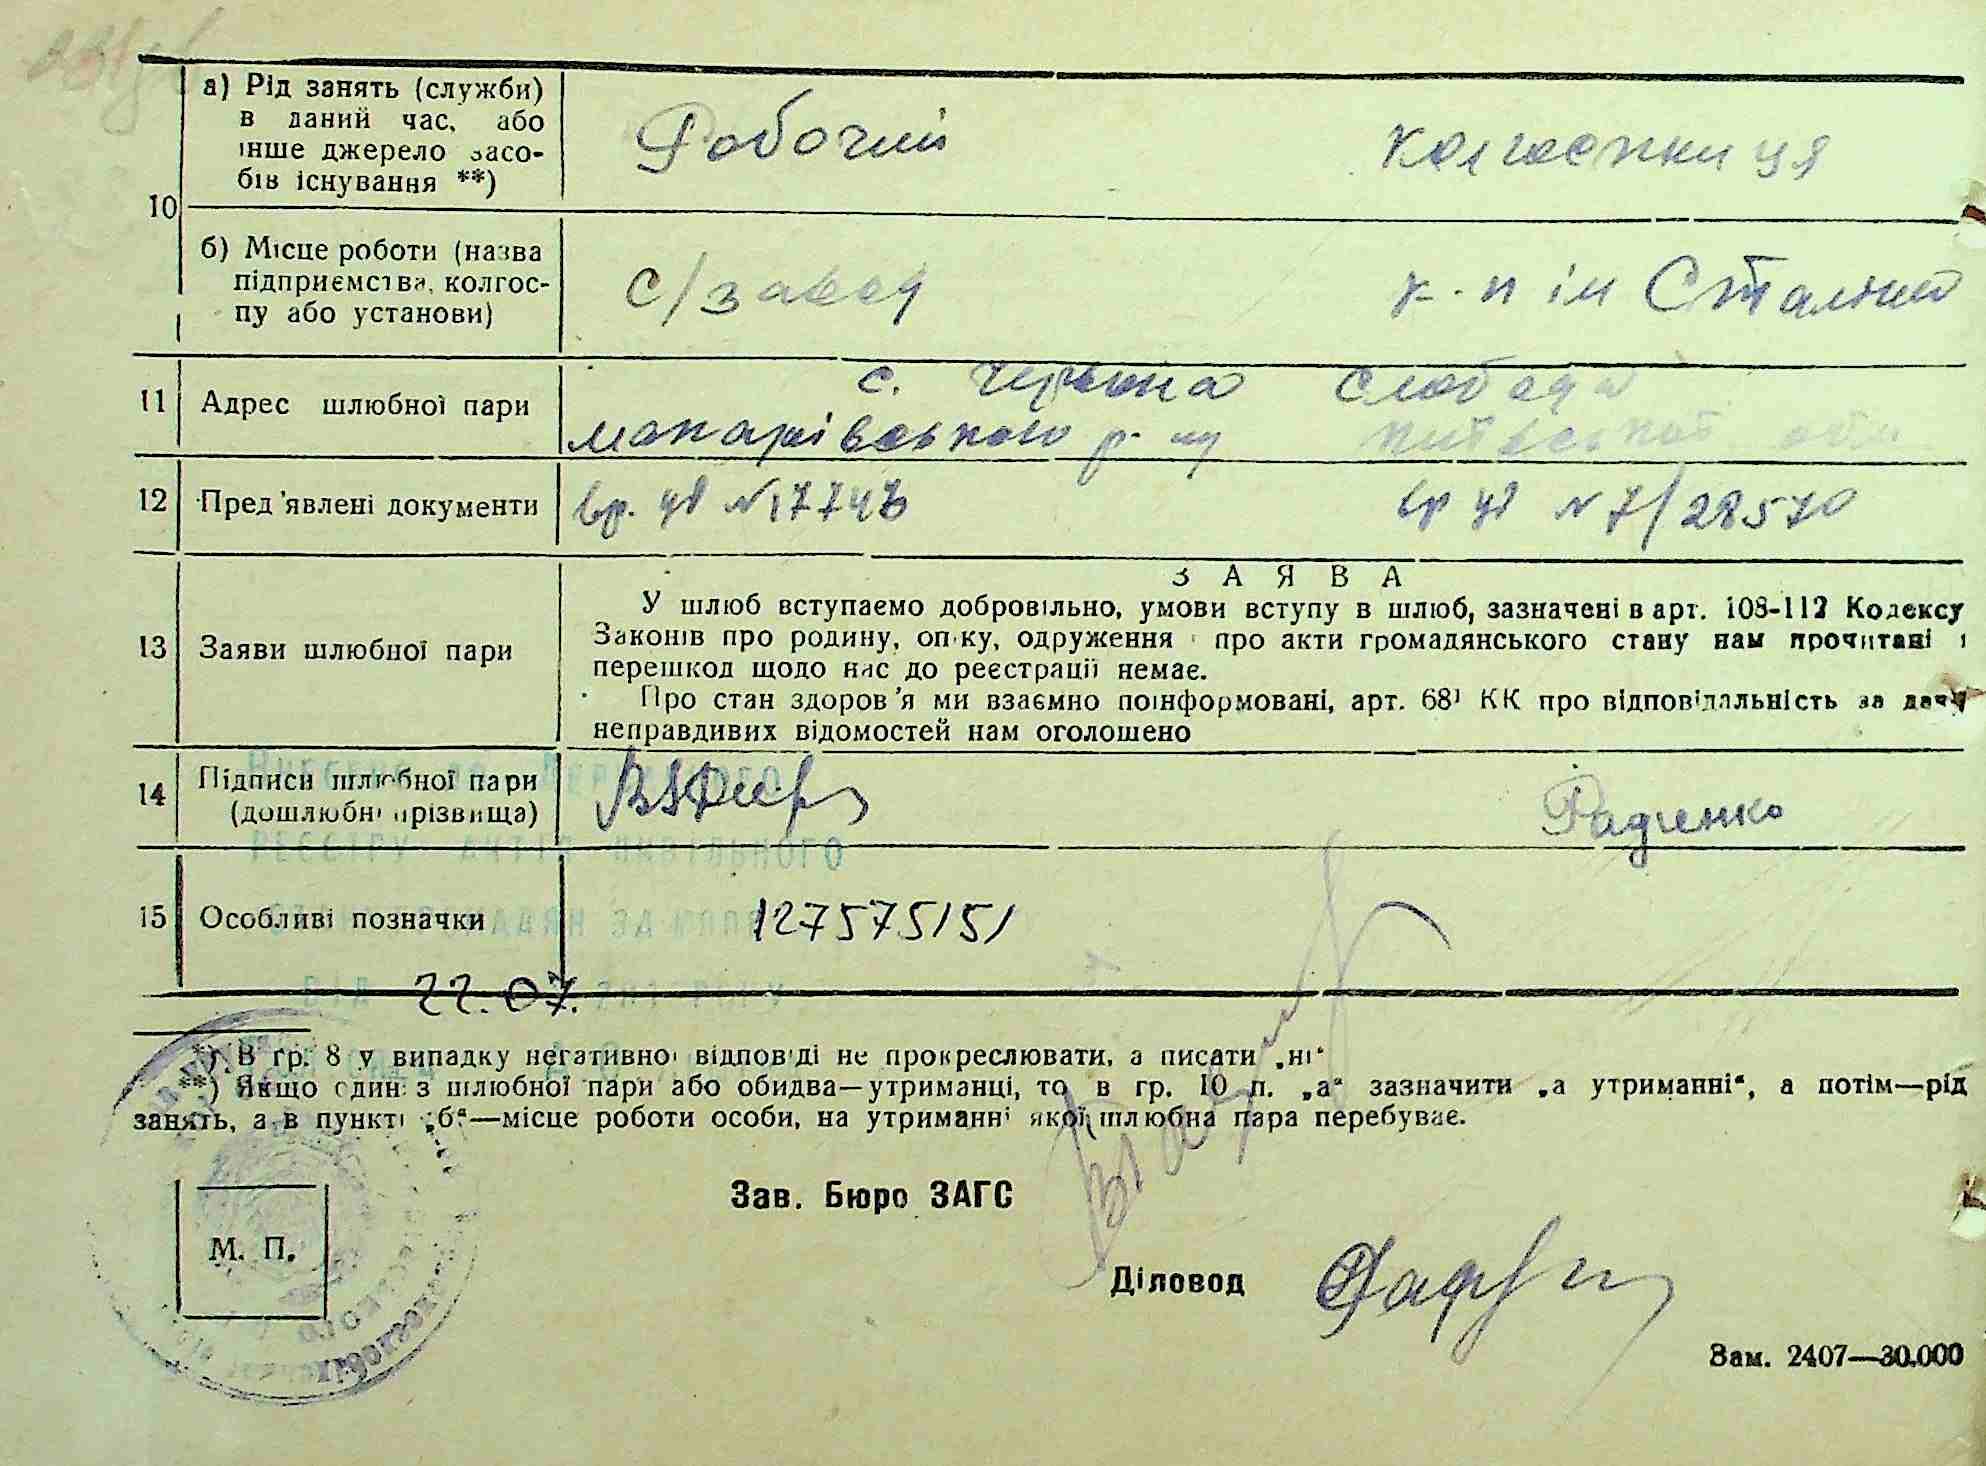 10
а) Рід занять (служби)
в даний час, або
інше джерело засо-
бів існування **)
Робочий
колгоспниця
б) Місце роботи (назва
підприємства, колгос-
пу або установи)
С/завод
к-п ім Сталіна
11
Адрес шлюбної пари
с. Червона Слобода
макарівського р-ну київської обл
12
Пред'явлені документи
вр. уд № 17748
вр уд № 7/28570
13
Заяви шлюбної пари
ЗАЯВА
У шлюб вступаємо добровільно, умови вступу в шлюб, зазначені в арт. 108-112 Кодексу
Законів про родину, опіку, одруження і про акти громадянського стану нам прочитані і
перешкод щодо нас до реєстрації немає.
Про стан здоров'я ми взаємно поінформовані, арт. 68¹ КК про відповідальність за дачу
неправдивих відомостей нам оголошено
14
Підписи шлюбної пари
(дошлюбні прізвища)
Радченко
Внесено до Державного
РЕЄСТРУ АКТІВ ЦИВІЛЬНОГО
15
Особливі позначки
12757515/
ВІД 22.07. РОКУ
*) В гр. 8 у випадку негативної відповіді не прокреслювати, а писати „ні“
**) Якщо один з шлюбної пари або обидва—утриманці, то в гр. 10 п. „а“ зазначити „а утриманні“, а потім—рід
занять, а в пункті „б“—місце роботи особи, на утриманні якої шлюбна пара перебуває.
Зав. Бюро ЗАГС
М. П.
Діловод
Зам. 2407—30.000